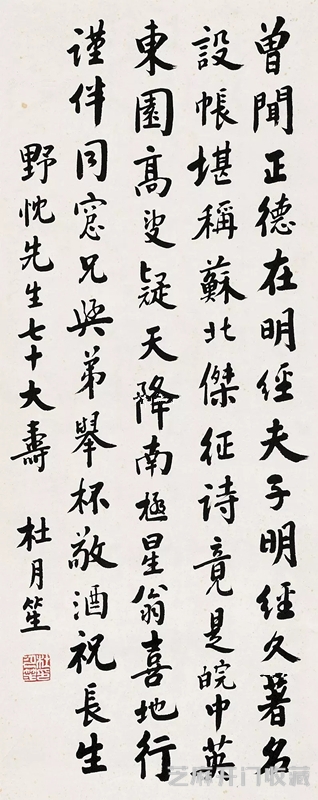 曾聞正德在明經夫子明經久著名
設帳堪稱蘇北傑征詩竟是皖中英
東園高叟疑天降南極星翁喜地行
謹伴同窓兄與弟舉杯敬酒祝長生
野忱先生七十大壽 杜月笙
芝麻开门收藏